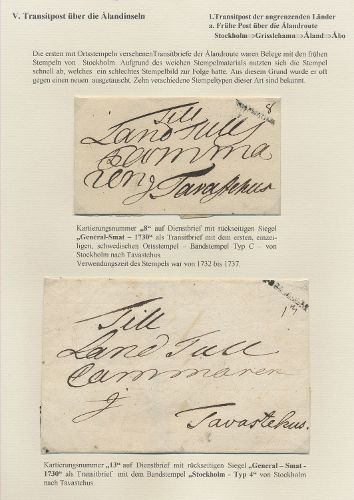 V. Transitpost über die Ålandinseln
1.Transitpost der angrenzenden Länder
a. Frühe Post über die Ålandroute
Stockholm⇒Grisslehamn⇒Åland⇒Åbo
Die ersten mit Ortsstempeln versehenenTransitbriefe der Ålandroute waren Belege mit den frühen
Stempeln von Stockholm. Aufgrund des weichen Stempelmaterials nutzten sich die Stempel
schnell ab, welches ein schlechtes Stempelbild zur Folge hatte. Aus diesem Grund wurde er oft
gegen einen neuen ausgetauscht. Zehn verschiedene Stempeltypen dieser Art sind bekannt.
8
Till
Land Tull
Camma
ren
Tavastehus
Kartierungsnummer „8“ auf Dienstbrief mit rückseitigen Siegel
„General-Smat – 1730“ als Transitbrief mit dem ersten, einzei-
ligen, schwedischen Ortsstempel – Bandstempel Typ C – von
Stockholm nach Tavastehus.
Verwendungszeit des Stempels war von 1732 bis 1737.
13
Till
Land Tull
Cammaren
Tavastehus.
Kartierungsnummer „13“ auf Dienstbrief mit rückseitigen Siegel „General – Smat -
1730“ als Transitbrief mit dem Bandstempel „Stockholm – Typ 4“ von Stockholm
nach Tavastehus.